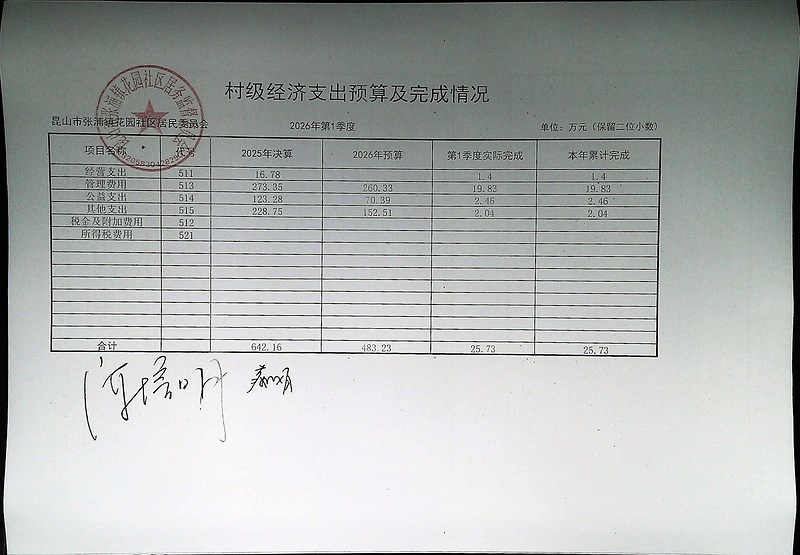 村级经济支出预算及完成情况
昆山市张浦镇花园社区居民委员会 2026年第1季度 单位：万元（保留二位小数）
项目名称 代号 2025年决算 2026年预算 第1季度实际完成 本年累计完成
经营支出 511 16.78 1.4 1.4
管理费用 513 273.35 260.33 19.83 19.83
公益支出 514 123.28 70.39 2.46 2.46
其他支出 515 228.75 152.51 2.04 2.04
税金及附加费用 512
所得税费用 521
合计 642.16 483.23 25.73 25.73